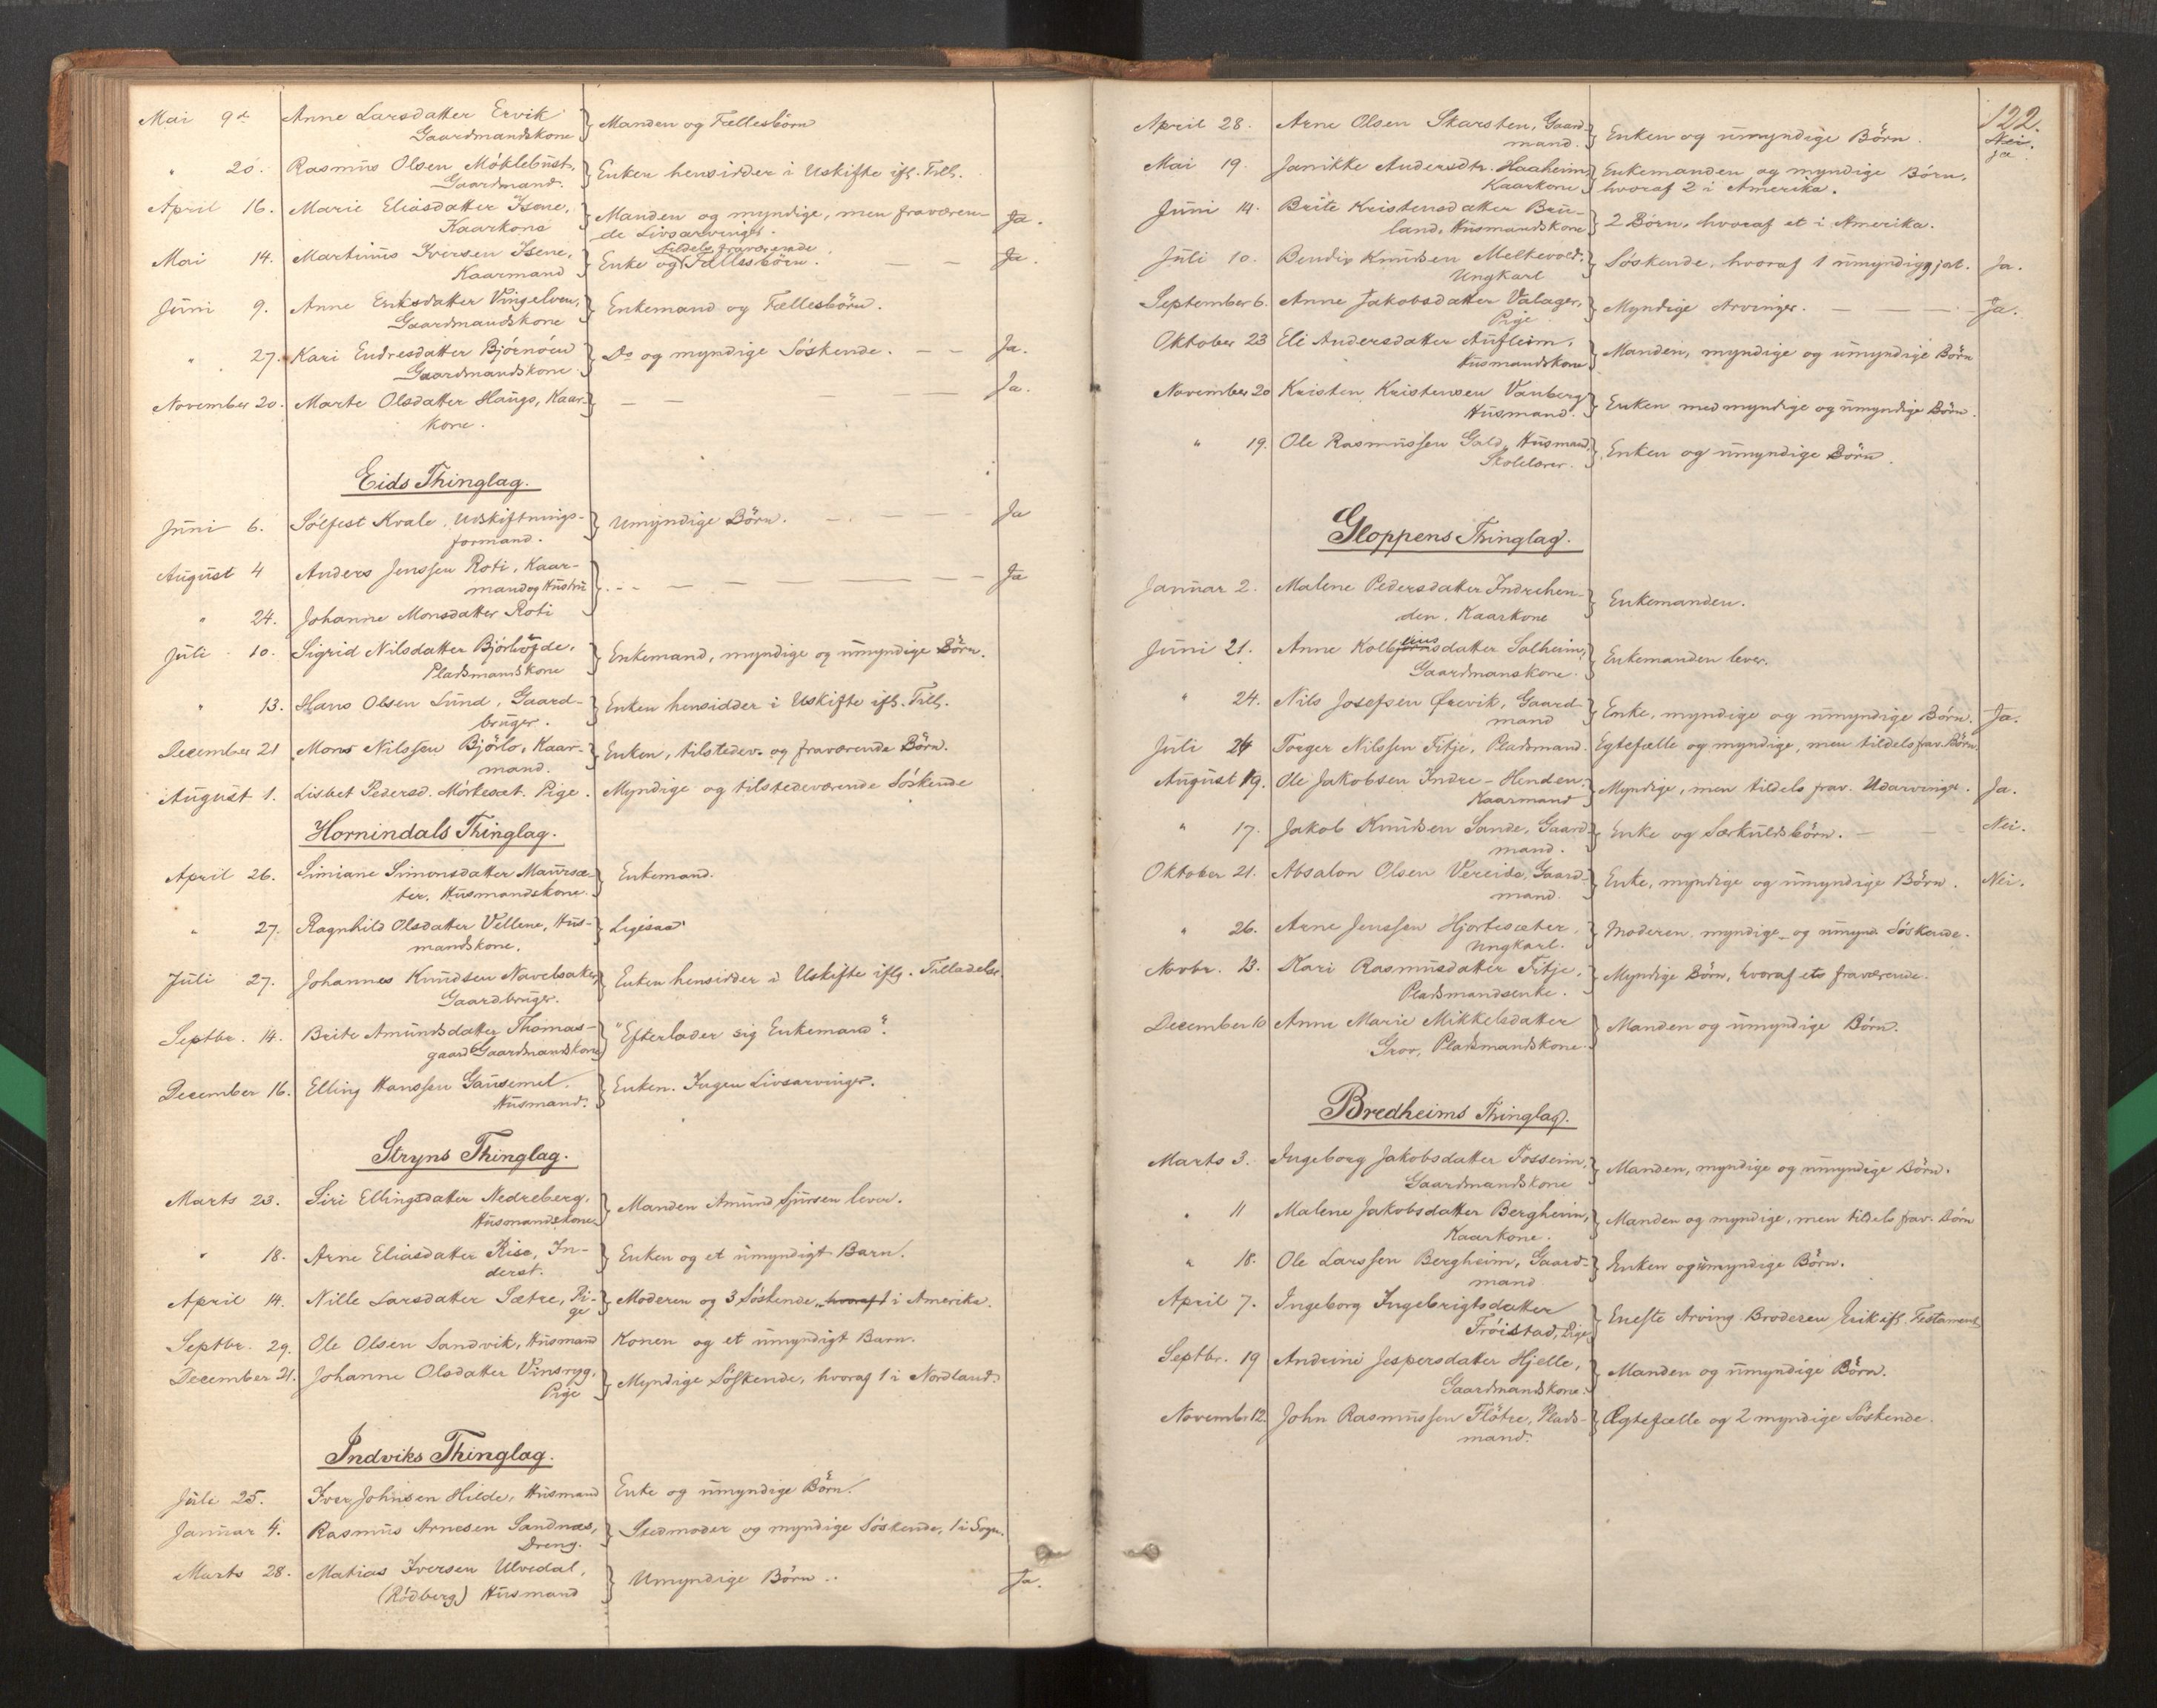 Mai 9de Anne Larsdatter Ervik
Gaardmandskone } Manden og Fællesbörn
" 20. Rasmus Olsen Möklebust,
Gaardmand. } Enken hensidder i Uskifte ifl. Till.
April 16. Marie Eliasdatter Isene,
Kaarkone } Manden og myndige, men fraværen-
de Livsarvinger. Ja.
Mai 14. Martinus Iversen Isene,
Kaarmand } Enke og tildels fraværende Fællesbörn. — — Ja.
Juni 9. Anne Eriksdatter Vingelven,
Gaardmandskone } Enkemand og Fællesbörn.
" 27. Kari Endresdatter Björnöen
Gaardmandskone } Do og myndige Söskende. — — Ja.
November 20. Marte Olsdatter Haugs, Kaar-
kone. } — — — — Ja.
Eids Thinglag.
Juni 6. Sölfest Kvale, Udskiftnings-
formand. } Umyndige Börn. — — — Ja
August 4 Anders Jenssen Roti, Kaar-
mand og Hustru } — — — — — — — Ja
" 24. Johanne Monsdatter Roti
Juli 10. Sigrid Nilsdatter Björhövde,
Pladsmandskone } Enkemand, myndige og umyndige Börn.
" 13. Hans Olsen Lund, Gaard-
bruger. } Enken hensidder i Uskifte ifl. Till.
December 21 Mons Nilssen Björlo, Kaar-
mand. } Enken, tilstedev. og fraværende Börn.
August 1. Lisbet Pedersd. Mörtesæt. Pige. Myndige og tilstedeværende Söskende
Hornindals Thinglag.
April 26. Simiane Simonsdatter Maursæ-
ter, Husmandskone. } Enkemand.
" 27. Ragnhild Olsdatter Vellene, Hus-
mandskone. } Ligesaa
Juli 27. Johannes Knudsen Navelsaker,
Gaardbruger. } Enken hensidder i Uskifte iflg. Tilladelse.
Septbr. 14. Brite Amundsdatter Thomas-
gaard Gaardmandskone } "Efterlader sig Enkemand".
December 16. Elling Hanssen Gausemel.
Husmand. } Enken. Ingen Livsarvinger.
Stryns Thinglag.
Marts 23. Siri Ellingsdatter Nedreberg,
Husmandskone } Manden Amund Sjursen lever.
" 18. Arne Eliasdatter Rise, In-
derst. } Enken og et umyndigt Barn.
April 14. Nille Larsdatter Sætre, Pi-
ge } Moderen og 3 Söskende, hvoraf 1 i Amerika.
Septbr. 29. Ole Olsen Sandvik, Husmand Konen og et umyndigt Barn.
December 21. Johanne Olsdatter Vinsryg,
Pige } Myndige Söskende, hvoraf 1 i Nordland.
Indviks Thinglag.
Juli 25. Iver Johnsen Hilde, Husmand Enke og umyndige Börn.
Januar 4. Rasmus Arnesen Sandnæs,
Dreng. } Stedmoder og myndige Söskende, 1 i Sogn.
Marts 28. Matias Iversen Ulvedal,
(Rödberg) Husmand } Umyndige Börn .. Ja.
122.
April 28. Arne Olsen Skarsten, Gaard-
mand. } Enken og umyndige Börn. Nei.
ja
Mai 19. Janikke Andersdtr. Haaheim
Kaarkone } Enkemanden og myndige Börn,
hvoraf 2 i Amerika.
Juni 14. Brite Kristensdatter Bru-
land, Husmandskone } 2 Börn, hvoraf et i Amerika.
Juli 10. Bendix Knudsen Melkevold.
Ungkarl } Söskende, hvoraf 1 umyndiggjort. Ja.
September 6. Anne Jakobsdatter Valager,
Pige } Myndige Arvinger. — — — Ja.
Oktober 23 Eli Andersdatter Aufleim,
Husmandskone } Manden, myndige og umyndige Börn
November 20 Kristen Kristensen Vanberg
Husmand. } Enken med myndige og umyndige Börn.
" 19. Ole Rasmussen Gald, Husmand,
Skolelærer. } Enken og umyndige Börn.
Gloppens Thinglag.
Januar 2. Malene Pedersdatter Indrehen-
den. Kaarkone } Enkemanden.
Juni 21. Anne Kolbeinsdatter Solheim,
Gaardmanskone. } Enkemanden lever.
" 24. Nils Josefsen Örevik, Gaard-
mand } Enke, myndige og umyndige Börn. Ja.
Juli 24 Torger Nilssen Fitje, Pladsmand. Egtefælle og myndige, men tildels frav. Börn.
August 19. Ole Jakobsen Indre-Henden.
Kaarmand } Myndige, men tildels frav. Udarvinger. Ja.
" 17. Jakob Knudsen Sande, Gaard-
mand. } Enke og Særkuldsbörn. — Nei.
Oktober 21. Absalon Olsen Vereide, Gaard-
mand. } Enke, myndige og umyndige Börn. Nei.
" 26. Arne Jenssen Hjortesæter,
Ungkarl. } Moderen, myndige og umynd. Söskende.
Novbr. 13. Kari Rasmusdatter Fitje,
Pladsmandsenke. } Myndige Börn, hvoraf et fraværende.
December 10 Anne Marie Mikkelsdatter
Grov, Pladsmandskone. } Manden og umyndige Börn.
Bredheims Thinglag.
Marts 3. Ingeborg Jakobsdatter Fosseim,
Gaardmandskone } Manden, myndige og umyndige Börn.
" 11 Malene Jakobsdatter Bergheim,
Kaarkone. } Manden og myndige, men tildels frav. Börn
" 18. Ole Larssen Bergheim, Gaard-
mand } Enken og umyndige Börn.
April 7. Ingeborg Ingebrigtsdatter
Fröistad, Pige } Eneste Arving Broderen Erik ifl. Testament
Septbr. 19 Andrine Jespersdatter Hjelle,
Gaardmandskone. } Manden og umyndige Börn.
November 12. John Rasmussen Flötre, Plads-
mand. } Ægtefælle og 2 myndige Söskende.